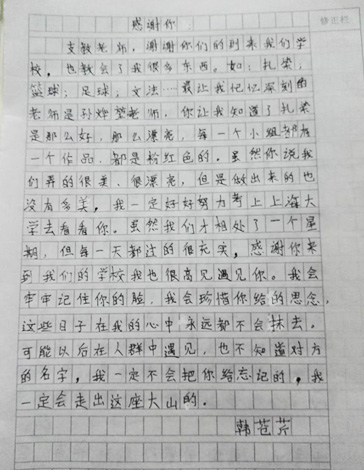 感谢你
修正栏
支教老师，谢谢你们的到来我们学
校，也教会了我很多东西。如：扎染；
篮球；足球；文法……最让我记忆深刻的
老师是孙烨望老师，你让我知道了扎染
是那么好，那么漂亮，每一个小组都有
一个作品，都是粉红色的。虽然你说我
们弄的很美，很漂亮，但是做出来的也
没有多美，我一定好好努力考上上海大
学去看看你。虽然我们才相处了一个星
期，但每一天都过的很充实，感谢你来
到我们的学校我也很高见遇见你。我会
牢牢记住你的脸，我会珍惜你给的思念，
这些日子在我的心中永远都不会抹去。
可能以后在人群中遇见，也不知道对方
的名字，我一定不会把你给忘记的，我
一定会走出这座大山的。
韩苍芹